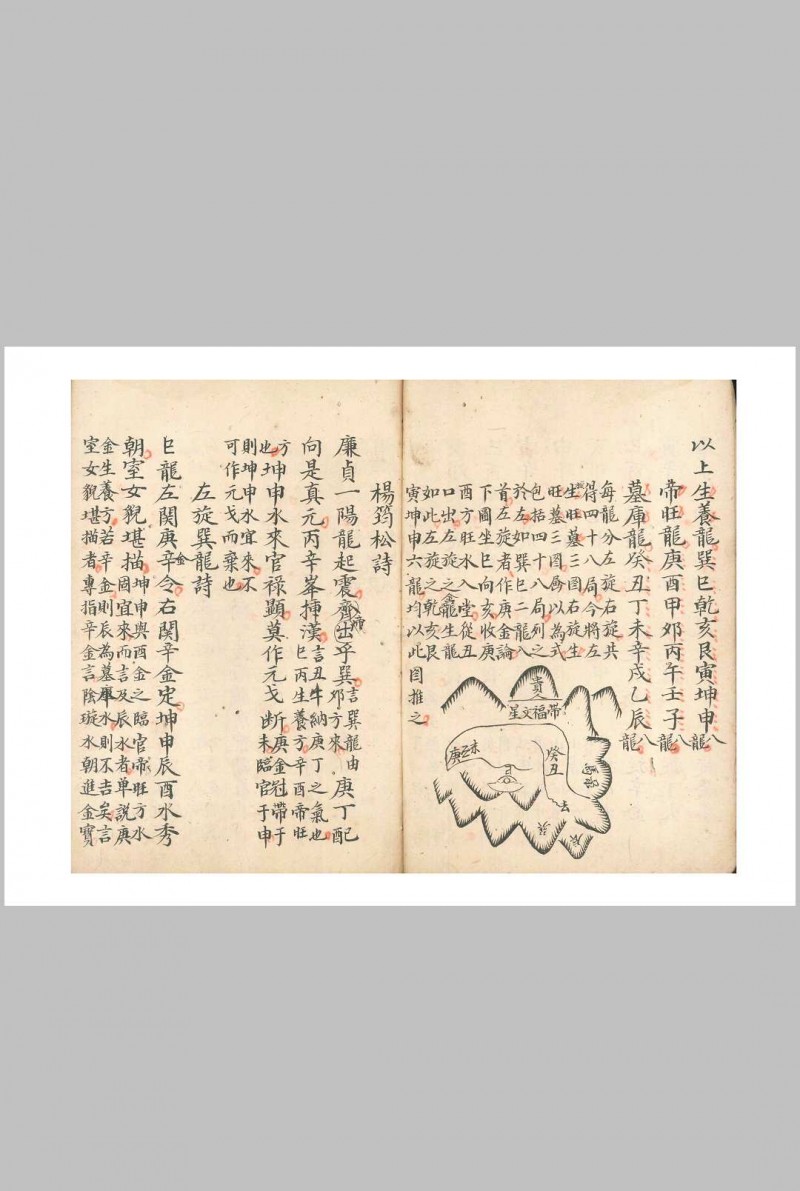 以上生養龍巽巳乾亥艮寅坤申八龍
帝旺龍庚酉甲卯丙午壬子八龍
墓庫龍癸丑丁未辛戌乙辰八龍
每龍分左旋右旋共
得四十八局今將左
生旺墓三图右旋生
旺墓三图爲以為式
包括四十八局列之
於左如巽巳二龍八
首左旋者作庚金論
下圖坐巳向亥收庚
酉方旺水入堂從丑
口出左旋之龍生龍
如此左旋之乾亥艮
寅坤申六龍均以此图推之
貴人
帶福文星
癸丑
庚
辰
楊筠松詩
廉貞一陽龍起震齊出乎巽言巽龍由卯方來庚丁配
向是真元丙辛峯揷漢言丑牛納庚丁之氣也巳丙生養方辛酉帝旺
方也坤申水來官祿顯莫作元戈断庚金冠帶于未臨官于申
則坤申水宜來不可作元戈而棄也
左旋巽龍詩
巳龍左関庚辛金令右関辛金定坤申辰酉水秀
朝室女貌堪描坤申與酉金之臨官帝旺方水固宜來而言及辰水者單說庚
金生養方若辛金則辰為墓庫水則不吉矣言
室女貌堪描者專指辛金言陰璇水朝進金寶